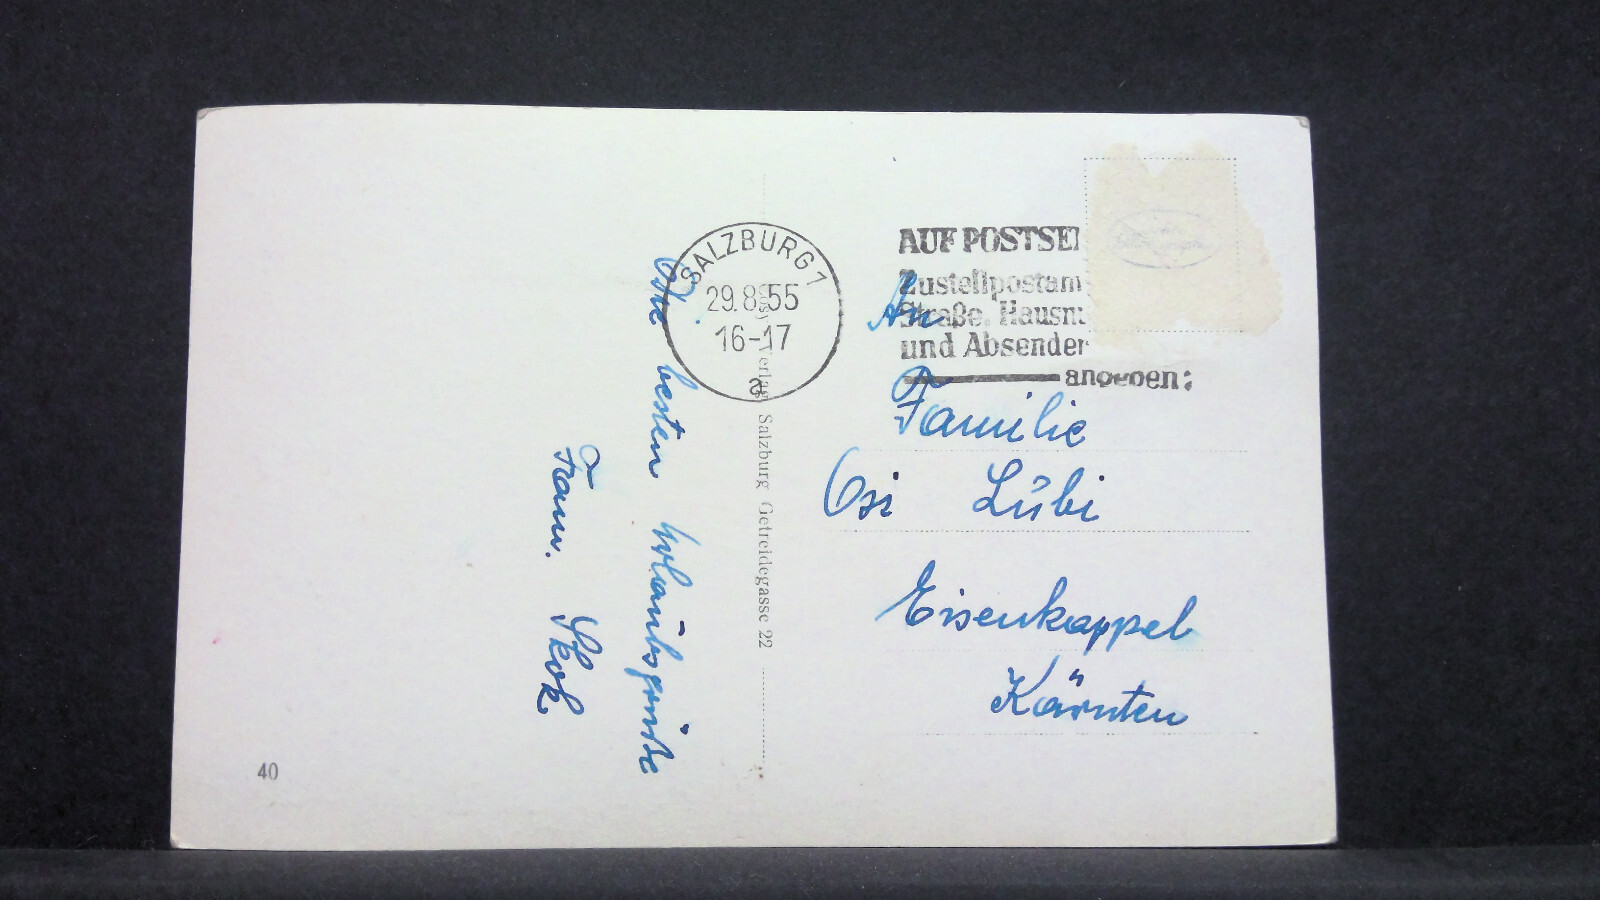 SALZBURG 1
29.8.55
16-17
a
AUF POSTSE
Zustellpostam
Straße, Hausnu
und Absender
angeben:
Die besten Urlaubsgrüße
Fam. Skok
Verlag Salzburg Getreidegasse 22
An
Familie
Osi Lübi
Eisenkappel
Kärnten
40